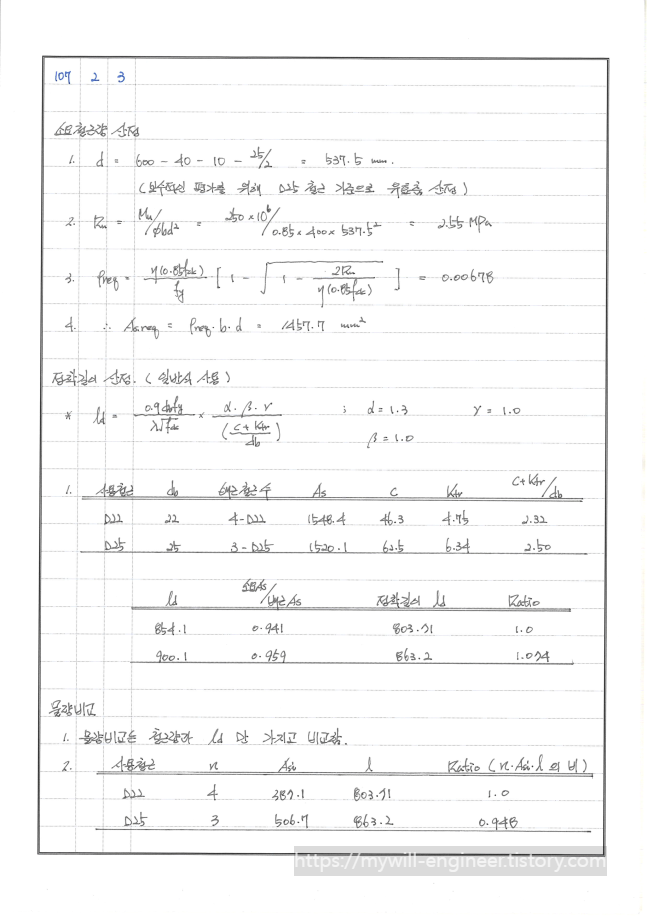 107 2 3
소요철근량 산정
1. d = 600 - 40 - 10 - 25/2 = 537.5 mm.
(보수적인 평가를 위해 D25 철근 기준으로 유효춤 산정)
2. Ru = Mu/φbd² = 250×10⁶/0.85×400×537.5² = 2.55 MPa
3. ρreq = η(0.85fck)/fy [ 1 - √(1 - 2Ru/η(0.85fck)) ] = 0.00678
4. ∴ As,req = ρreq·b·d = 1457.7 mm²
정착길이 산정. (일반식 사용)
* ld = 0.9dbfy/λ√fck × α·β·γ/((c+Ktr)/db) ; α=1.3 γ=1.0
β=1.0
1. 사용철근 db 배근철근수 As C Ktr C+Ktr/db
D22 22 4-D22 1548.4 46.3 4.75 2.32
D25 25 3-D25 1520.1 62.5 6.34 2.50
ld 소요As/배근As 정착길이 ld Ratio
854.1 0.941 803.71 1.0
900.1 0.959 863.2 1.074
물량비교
1. 물량비교는 철근량과 ld 만 가지고 비교함.
2. 사용철근 n Asi l Ratio (n·Asi·l 의 비)
D22 4 387.1 803.71 1.0
D25 3 506.7 863.2 0.948
https://mywill-engineer.tistory.com